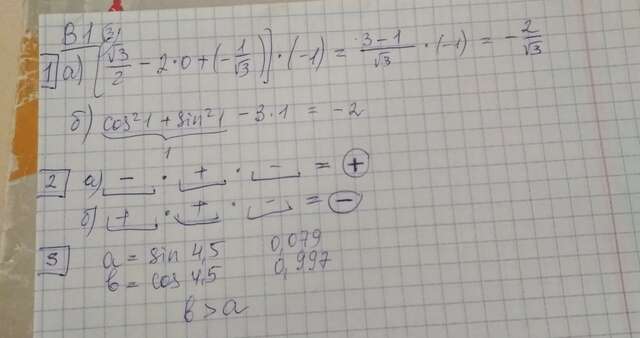 В1
1 а) [3 √3/2 − 2·0 + (−1/√3)] · (−1) = 3−1/√3 · (−1) = −2/√3
б) cos²1 + sin²1 − 3·1 = −2
1
2 а) − · + · − = +
б) + · + · − = −
3 a = sin 4,5 0,079
b = cos 4,5 0,997
b > a